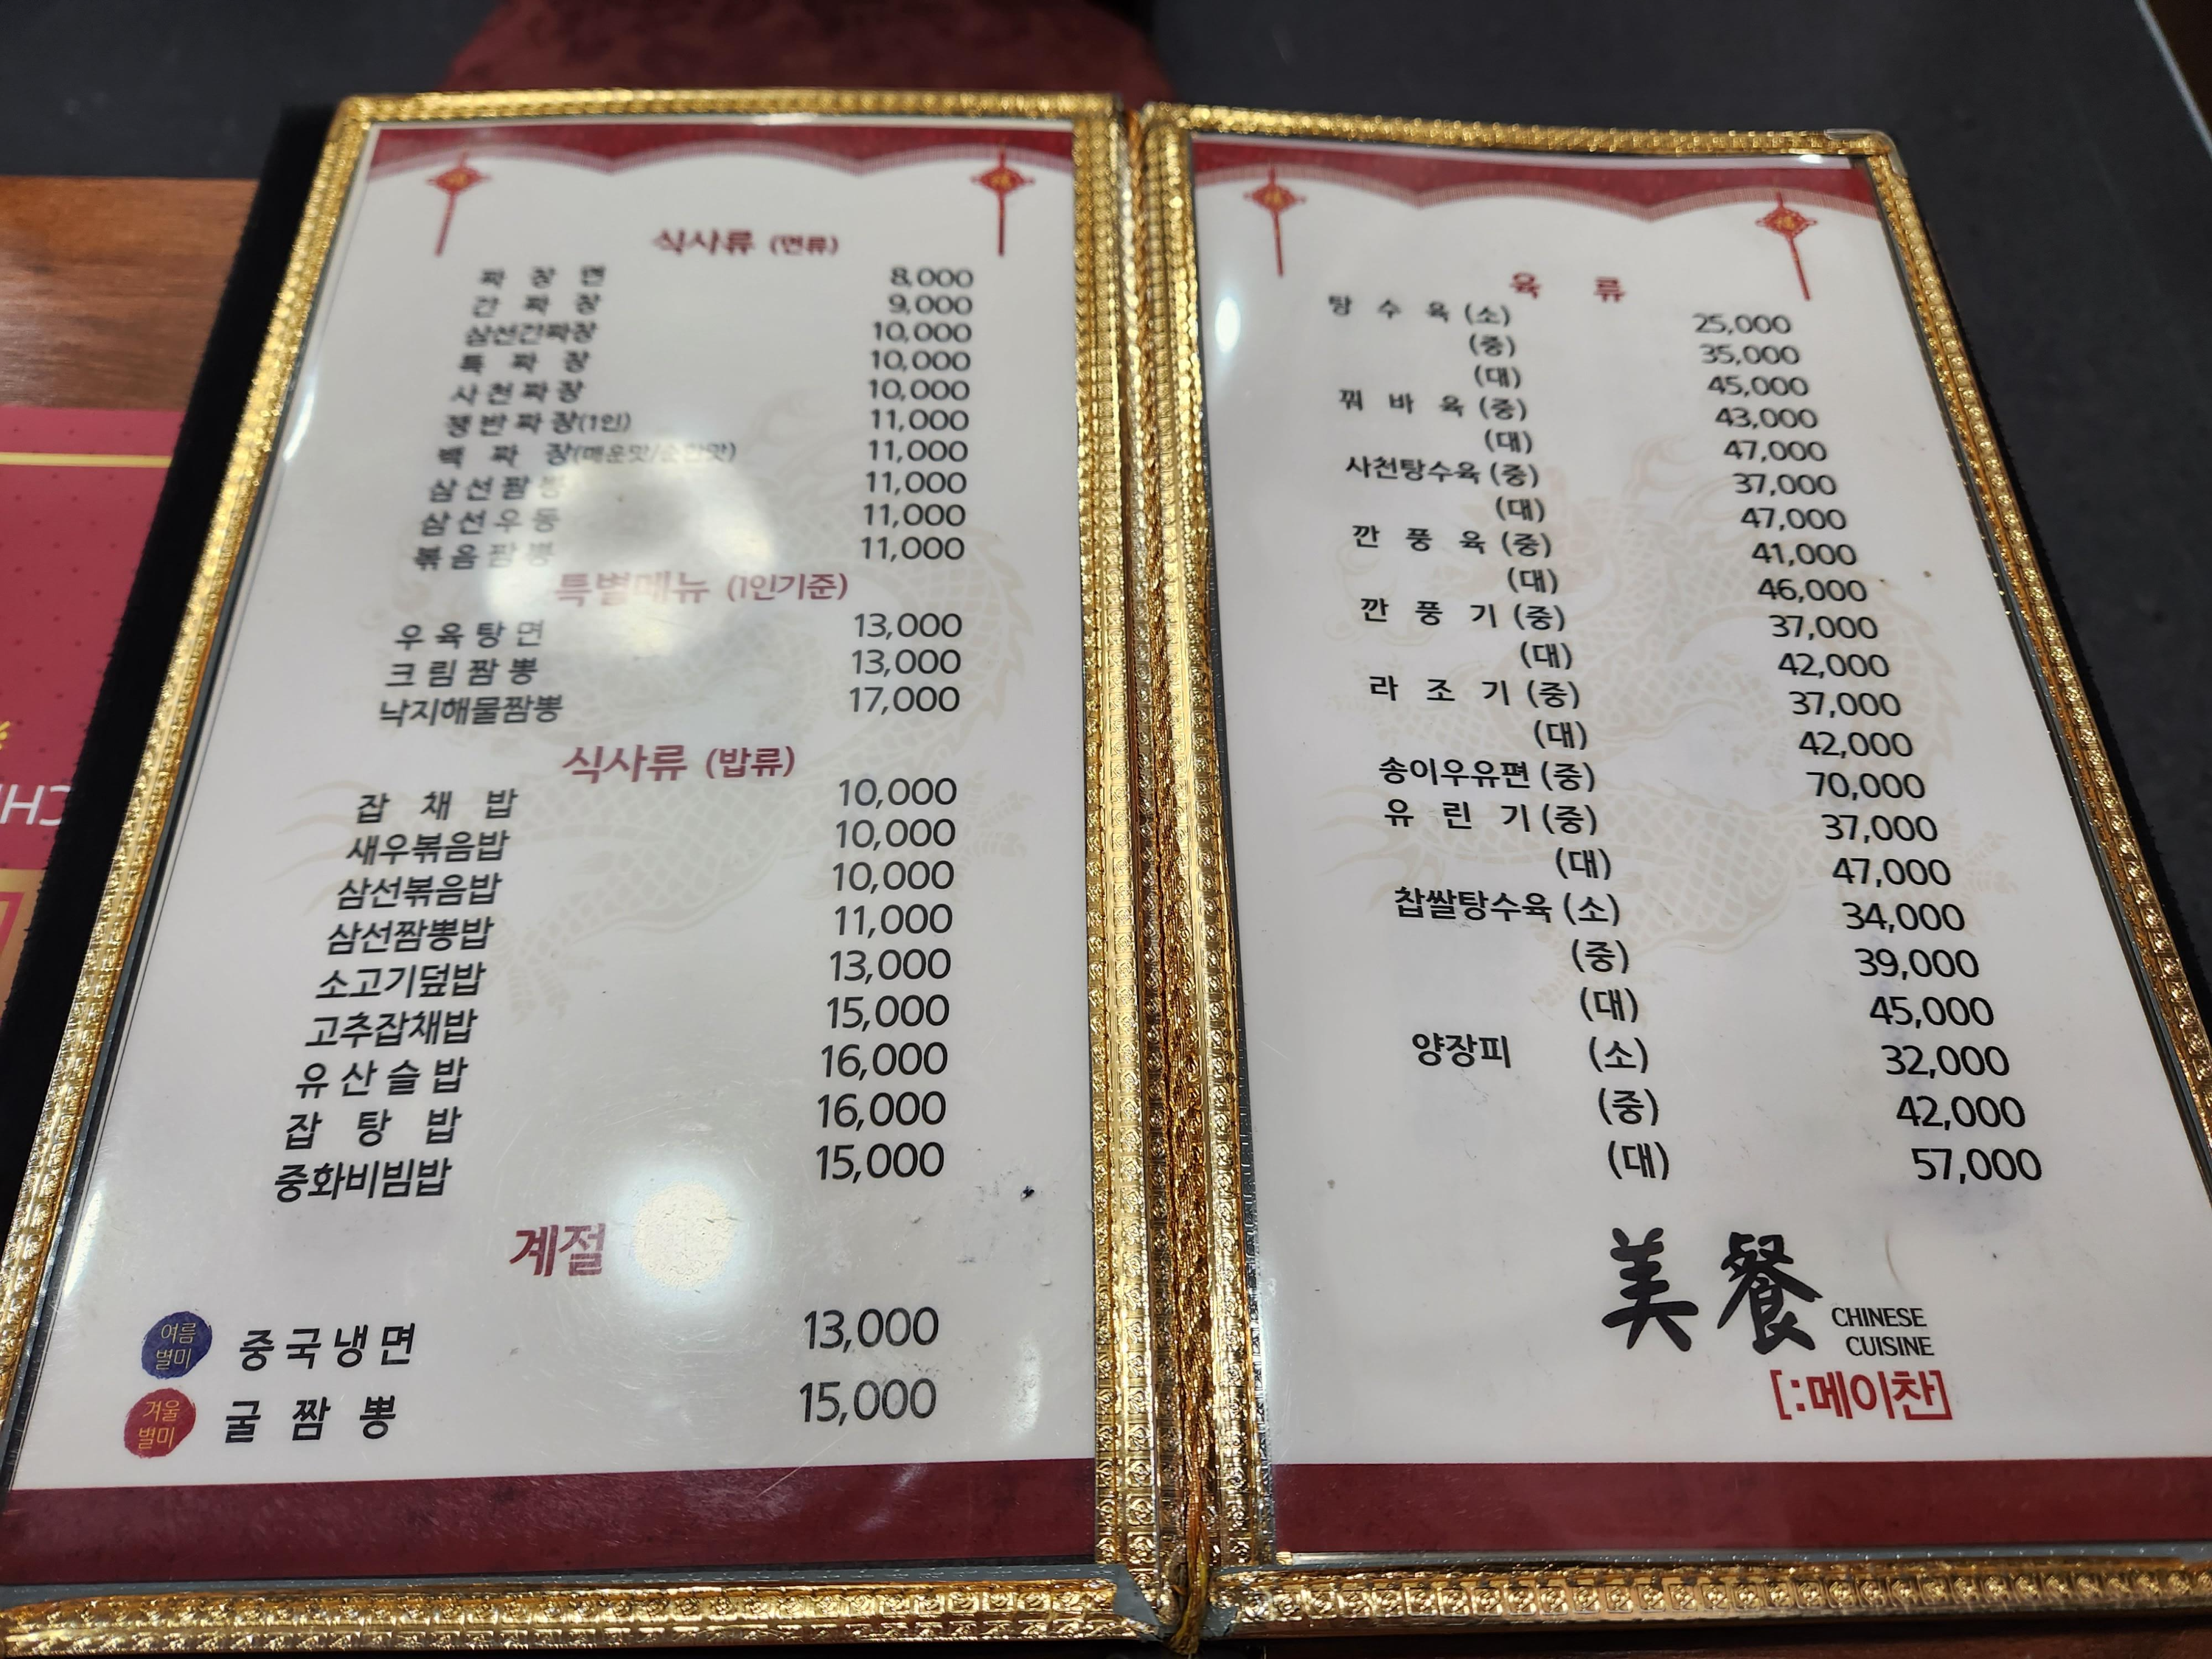 식사류 (면류)
짜 장 면 8,000
간 짜 장 9,000
삼선간짜장 10,000
특 짜 장 10,000
사천짜장 10,000
쟁반짜장(1인) 11,000
백 짜 장(매운맛/순한맛) 11,000
삼선짬뽕 11,000
삼선우동 11,000
볶음짬뽕 11,000
특별메뉴 (1인기준)
우육탕면 13,000
크림짬뽕 13,000
낙지해물짬뽕 17,000
식사류 (밥류)
잡 채 밥 10,000
새우볶음밥 10,000
삼선볶음밥 10,000
삼선짬뽕밥 11,000
소고기덮밥 13,000
고추잡채밥 15,000
유산슬밥 16,000
잡 탕 밥 16,000
중화비빔밥 15,000
계절
여름
별미
중국냉면 13,000
겨울
별미
굴 짬 뽕 15,000
육 류
탕 수 육 (소) 25,000
(중) 35,000
(대) 45,000
꿔 바 육 (중) 43,000
(대) 47,000
사천탕수육 (중) 37,000
(대) 47,000
깐 풍 육 (중) 41,000
(대) 46,000
깐 풍 기 (중) 37,000
(대) 42,000
라 조 기 (중) 37,000
(대) 42,000
송이우유편 (중) 70,000
유 린 기 (중) 37,000
(대) 47,000
찹쌀탕수육 (소) 34,000
(중) 39,000
(대) 45,000
양장피 (소) 32,000
(중) 42,000
(대) 57,000
美餐
CHINESE
CUISINE
[:메이찬]